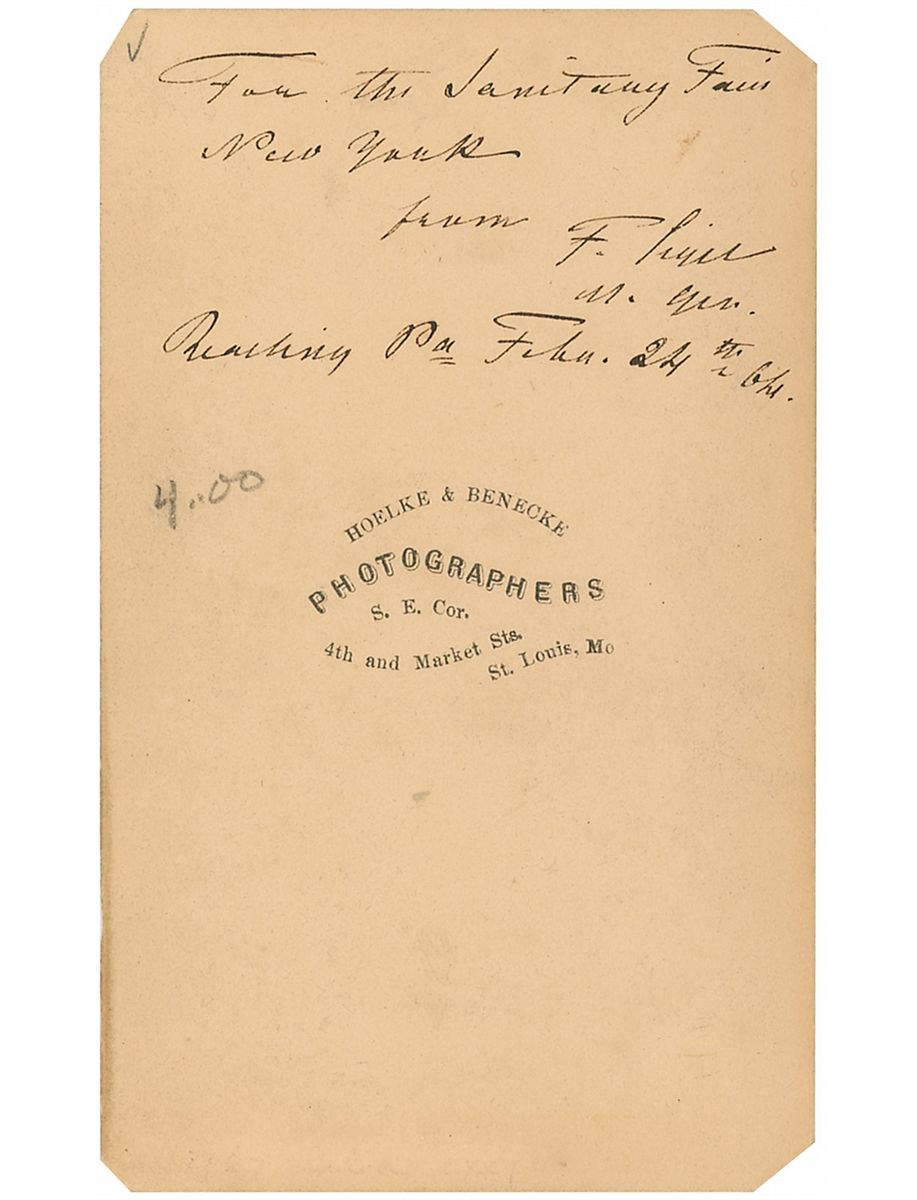 For the Sanitary Fair
New York
from F. Sigel
M. Gen.
Reading Pa Febr. 24th 64.
4.00
HOELKE & BENECKE
PHOTOGRAPHERS
S. E. Cor.
4th and Market Sts.
St. Louis, Mo